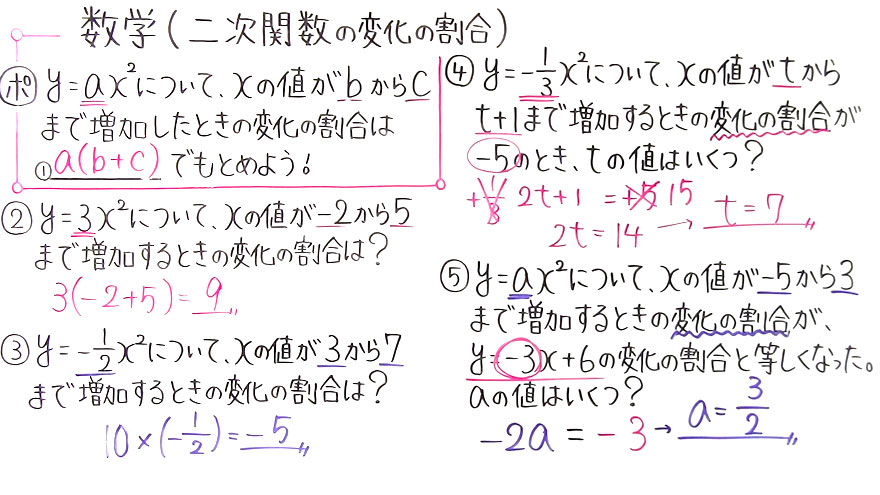 数学(二次関数の変化の割合)
ポ y=ax²について、xの値がbからc
まで増加したときの変化の割合は
①a(b+c)でもとめよう!
② y=3x²について、xの値が-2から5
まで増加するときの変化の割合は?
3(-2+5)=9
③ y=-1/2x²について、xの値が3から7
まで増加するときの変化の割合は?
10×(-1/2)=-5
④ y=-1/3x²について、xの値がtから
t+1まで増加するときの変化の割合が
-5のとき、tの値はいくつ?
2t+1=15
2t=14→t=7
⑤ y=ax²について、xの値が-5から3
まで増加するときの変化の割合が、
y=-3x+6の変化の割合と等しくなった。
aの値はいくつ?
-2a=-3→a=3/2